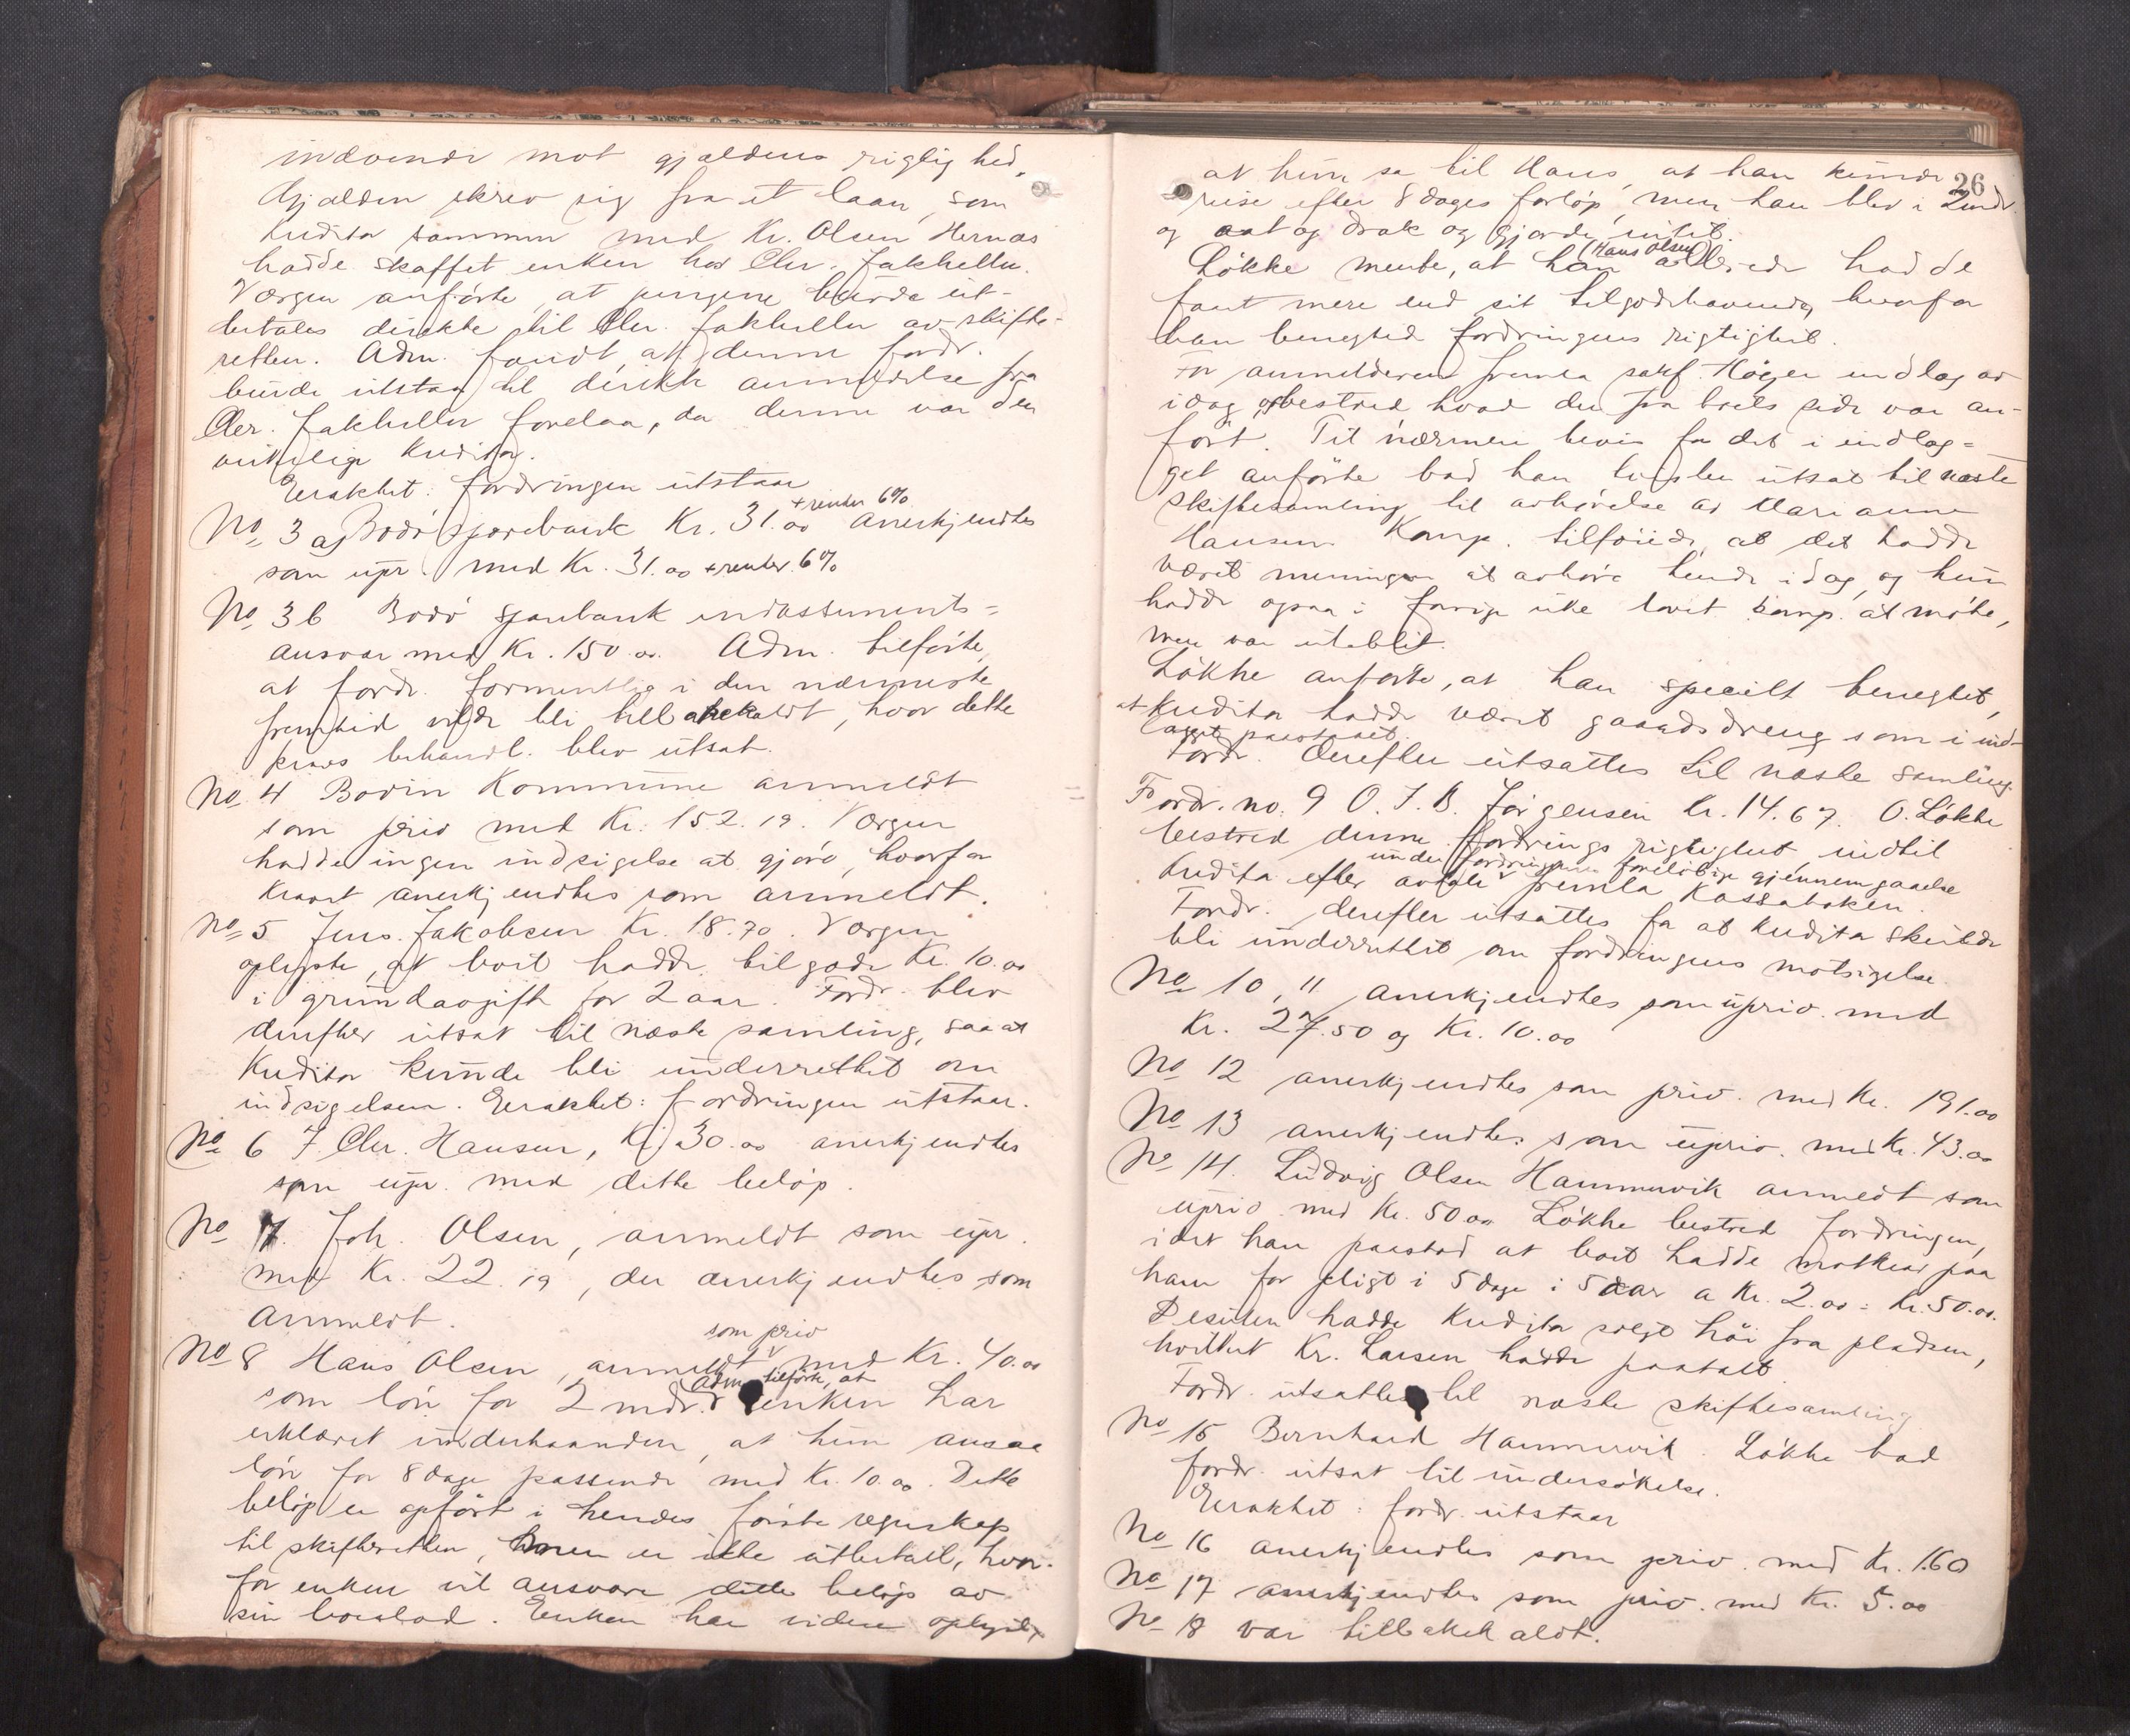 indvende mot gjældens rigtighed.
Gjælden skrev sig fra et laan, som
Kreditor sammen med Kr. Olsen Hernæs
hadde skaffet enken hos Chr. Jakhelln.
Værgen anførte, at pengene burde ut-
betales direkte til Chr. Jakhelln av skifte-
retten. Adm. fandt, at denne fordr.
burde utstaa til direkte anmeldelse fra
Chr. Jakhelln forelaa, da denne var den
virkelige Kreditor.
Eraktet: fordringen utstaar
No 3 a, Bodø Sparebank Kr. 31.00 + renter 6% anerkjendtes
som upr. med Kr. 31.00 + renter 6%
No 3 b Bodø sparebank endossements-
ansvar med Kr. 150.00. Adm. tilførte,
at fordr. formentlig i den nærmeste
fremtid vilde bli tilbakekaldt, hvor dette
krævs behandl. blev utsat.
No 4 Bodin Kommune anmeldt
som priv med Kr. 152.19. Værgen
hadde ingen indsigelse at gjøre, hvorfor
kravet anerkjendtes som anmeldt.
No 5 Jens Jakobsen Kr. 18.70. Værgen
oplyste, at boet hadde tilgode Kr. 10.00
i grundavgift for 2 aar. Fordr. blev
derefter utsat til næste samling, saa at
Kreditor kunde bli underrettet om
indsigelsen. Eraktet: fordringen utstaar.
No 6 F. Chr. Hansen, Kr. 30.00 anerkjendtes
som upr. med dette beløp.
No 7. Joh. Olsen, anmeldt som upr.
med Kr. 22.19, der anerkjendtes som
anmeldt.
No 8 Hans Olsen, anmeldt som priv med Kr. 40.00
som løn for 2 mdr. Adm. tilførte, at enken har
erklæret underhaanden, at hun ansaa
løn for 8 dage passende med Kr. 10.00. Dette
beløp er opført i hendes første regnskap
til skifteretten, men er ikke utbetalt, hvor-
for enken vil ansvare dette beløp av
sin boeslod. Enken har videre oplyst,
26
at hun sa til Hans, at han kunde
reise efter 8 dages forløp, men han blev i 2 mdr.
og aat og drak og gjorde intet.
Løkke mente, at han (Hans Olsen) allerede hadde
faat mere end sit tilgodehavende, hvorfor
han benegted fordringens rigtighet.
For anmelderen fremla sakf. Høyer indlæg av
idag og bestred hvad der fra boets side var an-
ført. Til nærmere bevis for det i indlæg-
get anførte bad han tvisten utsat til næste
skiftesamling til avhørelse av Marianne
Hansen. Komp. tilføiede, at det hadde
været meningen at avhøre hende idag, og hun
hadde ogsaa i forrige uke lovet komp. at møte,
men var uteblit.
Løkke anførte, at han specielt benegtet,
at Kreditor hadde været gaardsdreng som i ind-
lægget paastaaet.
Fordr. derefter utsattes til næste samling.
Fordr. no. 9 O. J. B. Jørgensen Kr. 14.67. O. Løkke
bestred denne fordrings rigtighet, indtil
Kreditor efter avtale under fordringens foreløbige gjennemgaaelse fremla Kassaboken.
Fordr. derefter utsattes for at Kreditor skulde
bli underrettet om fordringens motsigelse.
No 10, 11 anerkjendtes som upriv. med
Kr. 27.50 og Kr. 10.00
No 12 anerkjendtes som priv. med Kr. 191.00
No 13 anerkjendtes som upriv. med Kr. 43.00
No 14. Ludvig Olsen Hammervik anmeldt som
upriv. med Kr. 50.00 Løkke bestred fordringen,
idet han paastod at boet hadde motkrav paa
ham for pligt i 5 dage i 5 aar a Kr. 2.00 = Kr. 50.00.
Desuten hadde Kreditor solgt høi fra pladsen,
hvilket Kr. Larsen hadde paatalt.
Fordr. utsattes til næste skiftesamling
No 15 Bernhard Hammervik. Løkke bad
fordr. utsat til undersøkelse.
Eraktet: fordr. utstaar
No 16 anerkjendtes som priv. med Kr. 1.60
No 17 anerkjendtes som priv. med Kr. 5.00
No 18 var tilbakekaldt.